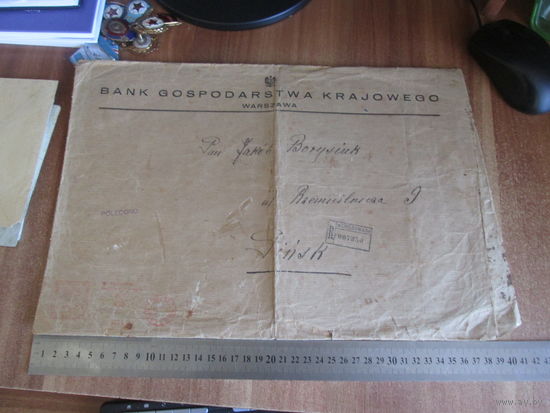 BANK GOSPODARSTWA KRAJOWEGO
WARSZAWA
Pan Jakób Borysiuk
ul Rzemieślnicza 9
POLECONO
Pińsk
1 2 3 4 5 6 7 8 9 10 11 12 13 14 15 16 17 18 19 20 21 22 23 24 25 26 27 28 29 30 31 32 33 34 35 36 37 38 39 40 41 42
www.ay.by